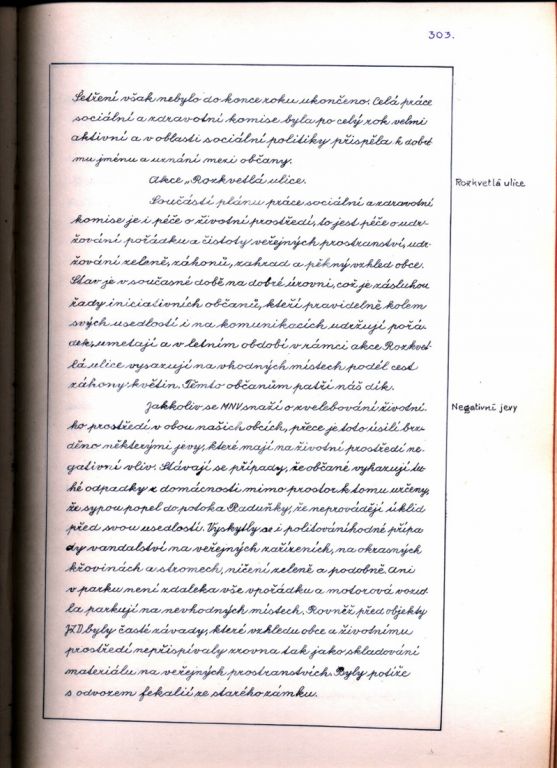 303.
Šetření však nebylo do konce roku ukončeno. Celá práce
sociální a zdravotní komise byla po celý rok velmi
aktivní a v oblasti sociální politiky přispěla k dobré
mu jménu a uznání mezi občany.
Akce „Rozkvetlá ulice.
Rozkvetlá ulice
Součástí plánu práce sociální a zdravotní
komise je i péče o životní prostředí, to jest péče o udr-
žování pořádku a čistoty veřejných prostranství, udr-
žování zeleně, záhonů, zahrad a pěkný vzhled obce.
Stav je v současné době na dobré úrovni, což je zásluhou
řady iniciativních občanů, kteří pravidelně kolem
svých usedlostí i na komunikacích udržují pořá-
dek, umetají a v letním období v rámci akce Rozkvet-
lá ulice vysazují na vhodných místech podél cest
záhony květin. Těmto občanům patří náš dík.
Jakkoliv se MNV snaží o zvelebování životní-
Negativní jevy
ho prostředí v obou našich obcích, přece je toto úsilí brz-
děno některými jevy, které mají na životní prostředí ne-
gativní vliv. Stávají se případy, že občané vyhazují tu-
hé odpadky z domácností mimo prostor k tomu určený,
že sypou popel do potoka Raduňky, že neprovádějí úklid
před svou usedlostí. Vyskytly se i politováníhodné přípa
dy vandalství na veřejných zařízeních, na okrasných
křovinách a stromech, ničení zeleně a podobně. Ani
v parku není zdaleka vše v pořádku a motorová vozid-
la parkují na nevhodných místech. Rovněž před objekty
JZD byly časté závady, které vzhledu obce a životnímu
prostředí nepřispívaly zrovna tak jako skladování
materiálu na veřejných prostranstvích. Byly potíže
s odvozem fekalií ze starého zámku.